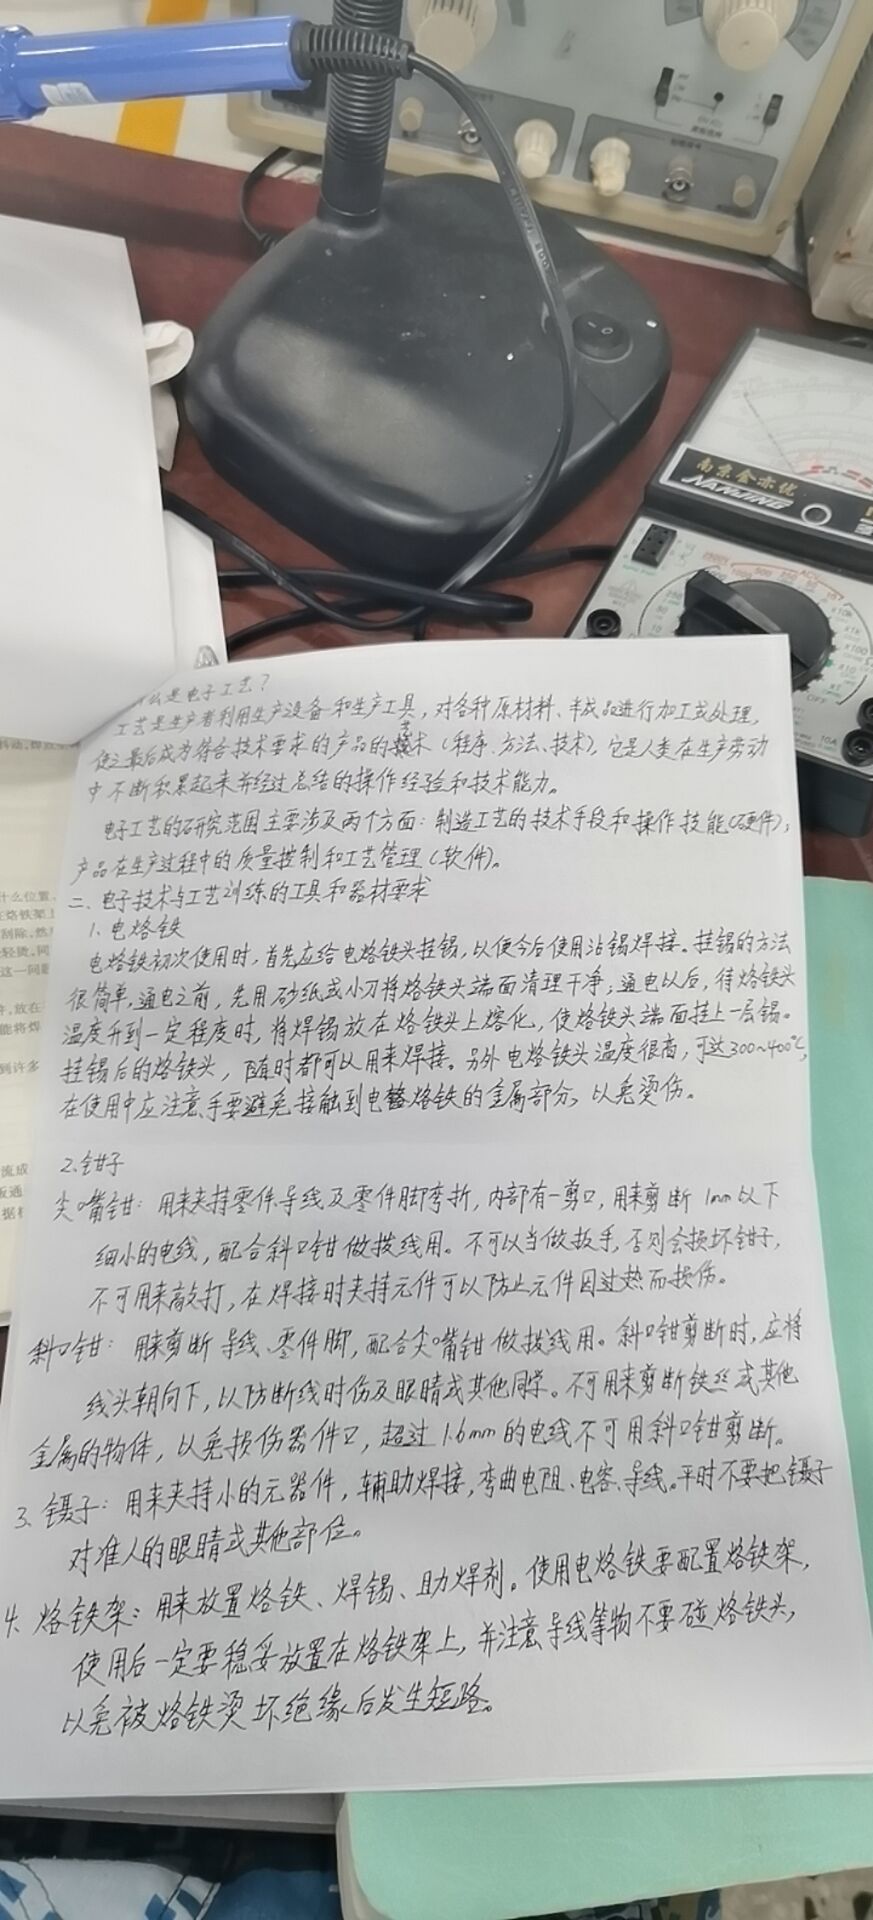 什么是电子工艺？
工艺是生产者利用生产设备和生产工具，对各种原材料、半成品进行加工或处理，
使之最后成为符合技术要求的产品的艺术（程序、方法、技术），它是人类在生产劳动
中不断积累起来并经过总结的操作经验和技术能力。
电子工艺的研究范围主要涉及两个方面：制造工艺的技术手段和操作技能（硬件）；
产品在生产过程中的质量控制和工艺管理（软件）。
二、电子技术与工艺训练的工具和器材要求
1、电烙铁
电烙铁初次使用时，首先应给电烙铁头挂锡，以便今后使用沾锡焊接。挂锡的方法
很简单，通电之前，先用砂纸或小刀将烙铁头端面清理干净；通电以后，待烙铁头
温度升到一定程度时，将焊锡放在烙铁头上熔化，使烙铁头端面挂上一层锡。
挂锡后的烙铁头，随时都可以用来焊接。另外电烙铁头温度很高，可达300~400℃，
在使用中应注意手要避免接触到电烙铁的金属部分，以免烫伤。
2、钳子
尖嘴钳：用来夹持零件、导线及零件脚弯折，内部有一剪口，用来剪断1mm以下
细小的电线，配合斜口钳做拨线用。不可以当做扳手，否则会损坏钳子，
不可用来敲打，在焊接时夹持元件可以防止元件因过热而损伤。
斜口钳：用来剪断导线、零件脚，配合尖嘴钳做拨线用。斜口钳剪断时，应将
线头朝向下，以防断线时伤及眼睛或其他同学。不可用来剪断铁丝或其他
金属的物体，以免损伤器件口，超过1.6mm的电线不可用斜口钳剪断。
3、镊子：用来夹持小的元器件，辅助焊接，弯曲电阻、电容、导线。平时不要把镊子
对准人的眼睛或其他部位。
4、烙铁架：用来放置烙铁、焊锡、助焊剂。使用电烙铁要配置烙铁架，
使用后一定要稳妥放置在烙铁架上，并注意导线等物不要碰烙铁头，
以免被烙铁烫坏绝缘后发生短路。
南京金亦优
NANJING
OFF
10A